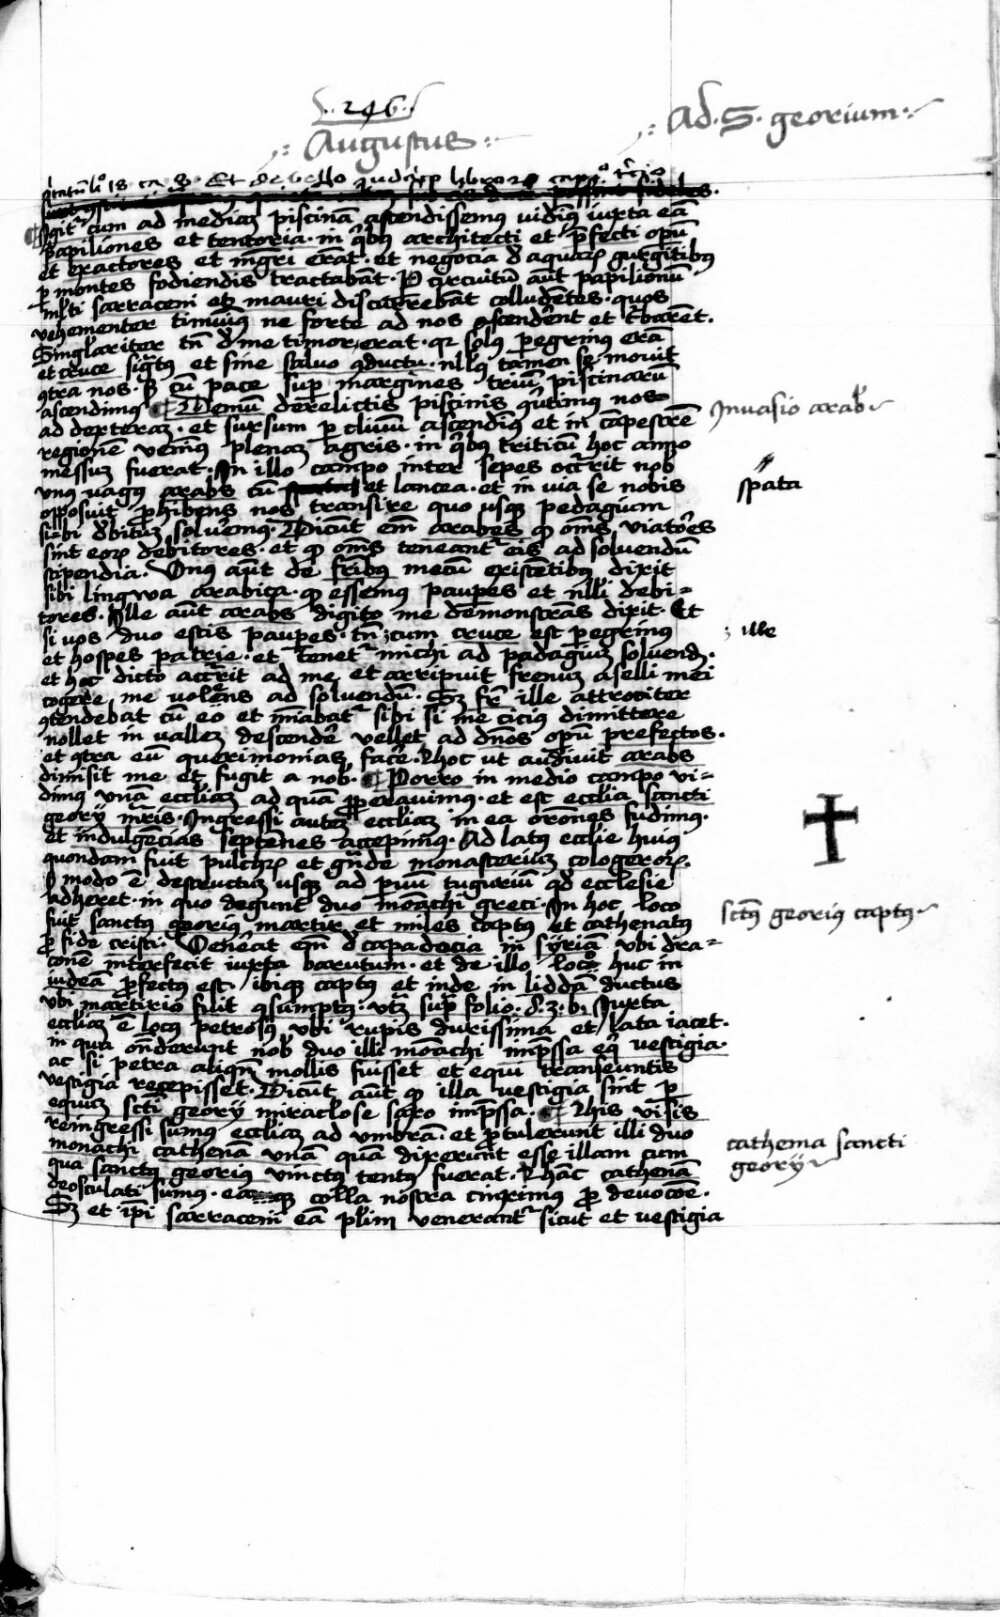 .. 246 ..
Augustus
Ad. S. georium
Et de bello
Igit᷑ cum ad mediaz piscinā ascendissemus vidim᷒ iuxta eā
Papiliones et tentoria . in qͥbus architecti et p̄fecti opū
et exactores et erāt . et negocia aquaꝝ gurgitibus
ꝑ montes fodiendis tractabāt . circuitū aūt papilionū
ml̄ti sarraceni et mauri discurrebāt colludētes . quos
vehementer timuim᷒ ne forte ad nos ascenderent et t᷑barēt .
Singl̄ariter tn̄ de me timor erat . qr sol᷒ pegrin᷒ erā
et cruce sigͣt᷒ et sine saluo 9ductu . null᷒ tamen se mouit
9tra nos . sꝫ cū pace suꝑ margines triū piscinarū
ascendim᷒ . Demū derelictis piscinis nos
ad dexteraz . et sursum ꝑ cliuū ascendim᷒ et in cāpestrē
regionē venim᷒ plenaz agris . in qͥbus triticū hoc anno
messuz fuerat . In illo campo inter sepes occ᷑rit nob̄
vn᷒ vag᷒ arabs cū et lancea . et in via se nobis
opposuit ꝓhibens nos transire quo usqꝫ pedagium
sibi debitum soluerem᷒ . Dicūt em̄ arabes ꝙ om̄s viatores
sint eoꝝ debitores . et ꝙ om̄s teneant᷑ eis ad soluendū
stipendia . Vnus aūt de frībus mecū existētibus dixit
sibi lingwa arabica . ꝙ essemus pauꝑes et nlli debi-
tores . Ille aūt arabs digito me demonstrās dixit . Et
si vos duo estis pauꝑes . tn̄ cum cruce est pegrinus
et hospes patrie . et tenet᷑ michi ad padagiuz soluendū .
et hoc dicto acc᷑rit ad me et arripuit frenuz aselli mei
cogere me volens ad soluendū . Sꝫ fr̄ ille attrociter
9tendebat cū eo et mīabat᷑ sibi si me cicius dimittere
nollet in vallez descendere vellet ad dn̄os opū prefectos .
et 9tra eū querimonias facere . hoc ut audiuit arabs
dimisit me et fugit a nob̄ . Porro in medio campo vi-
dim᷒ vnā eccliaz ad quā ꝓperauimus . et est ecclia sancti
georij mr̄is . Ingressi autez eccliaz in ea orōnes fudim᷒ .
et indulgēcias septēnes accepim᷒ . Ad lat᷒ ecclie hui᷒
quondam fuit pulchꝝ et gͣnde monasteriuz cologeroꝝ .
sꝫ modo ē destructuz usqꝫ ad ꝑuū tuguriū qd ecclesie
adheret . in quo degunt duo monachi greci . In hoc loco
fuit sanctus georius martir et miles capt᷒ et cathenatus
ꝓ fide cristi . Venerat em̄ de capadocia in syria vbi dra-
conē interfecit iuxta barutum . et de illo loco huc in
iudeā ꝓfectus est . ibiqꝫ captus et inde in lidda ductus
vbi martirio fuit 9sumptus . vt supͣ folio . 83. b. Iuxta
eccliaz ē locus petrosus vbi rupis durissima et lata iacet .
in qua ondērunt nob̄ duo illi monachi imp̄ssa equi vestigia .
ac si petra aliqn̄ mollis fuisset et equi transeuntis
vestigia recepisset . Dicūt aūt ꝙ illa vestigia sint ꝑ
equuz sctī georij miraculose saxo imp̄ssa . his visis
reingressi sumus eccliaz ad vmbrā . et ꝓtulerunt illi duo
monachi cathenā vnā quā dixerunt esse illam cum
qua sanctus georius vinctus tentus fuerat . hāc cathenā
deosculati sumus . eaqꝫ colla nostra cinximus ꝓ deuocōe .
Sꝫ et ipī sarraceni eā plīm venerant᷑ sicut et vestigia
Inuasio arab̄
spata
ille
sctūs georius captus
cathema sancti
georij